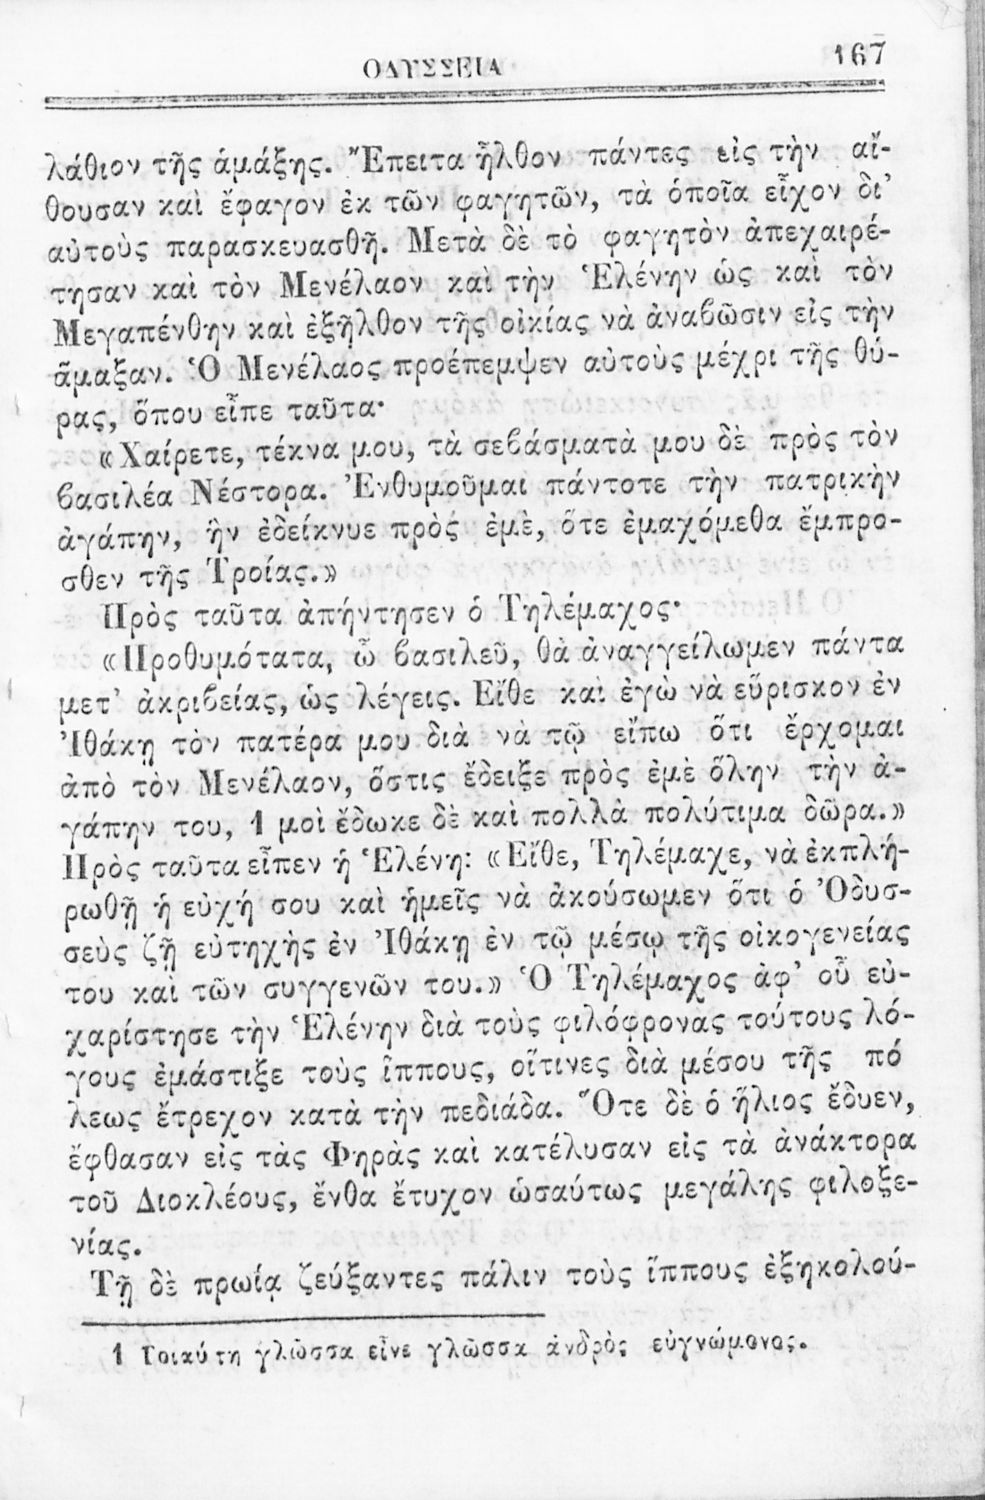 ΟΔΥΣΣΕΙΑ 167
λάθιον τῆς ἁμάξης. Ἔπειτα ἦλθον πάντες εἰς τὴν αἴ-
θουσαν καὶ ἔφαγον ἐκ τῶν φαγητῶν, τὰ ὁποῖα εἶχον δι’
αὐτοὺς παρασκευασθῆ. Μετὰ δὲ τὸ φαγητὸν ἀπεχαιρέ-
τησαν καὶ τὸν Μενέλαον καὶ τὴν Ἑλένην ὡς καὶ τὸν
Μεγαπένθην καὶ ἐξῆλθον τῆς οἰκίας νὰ ἀναβῶσιν εἰς τὴν
ἅμαξαν. Ὁ Μενέλαος προέπεμψεν αὐτοὺς μέχρι τῆς θύ-
ρας, ὅπου εἶπε ταῦτα·
«Χαίρετε, τέκνα μου, τὰ σεβάσματά μου δὲ πρὸς τὸν
βασιλέα Νέστορα. Ἐνθυμοῦμαι πάντοτε τὴν πατρικὴν
ἀγάπην, ἣν ἐδείκνυε πρὸς ἐμὲ, ὅτε ἐμαχόμεθα ἔμπρο-
σθεν τῆς Τροίας.»
Πρὸς ταῦτα ἀπήντησεν ὁ Τηλέμαχος·
«Προθυμότατα, ὦ βασιλεῦ, θὰ ἀναγγείλωμεν πάντα
μετ’ ἀκριβείας, ὡς λέγεις. Εἴθε καὶ ἐγὼ νὰ εὕρισκον ἐν
Ἰθάκῃ τὸν πατέρα μου διὰ νὰ τῷ εἴπω ὅτι ἔρχομαι
ἀπὸ τὸν Μενέλαον, ὅστις ἔδειξε πρὸς ἐμὲ ὅλην τὴν ἀ-
γάπην του, 1 μοὶ ἔδωκε δὲ καὶ πολλὰ πολύτιμα δῶρα.»
Πρὸς ταῦτα εἶπεν ἡ Ἑλένη: «Εἴθε, Τηλέμαχε, νὰ ἐκπλή-
ρωθῇ ἡ εὐχή σου καὶ ἡμεῖς νὰ ἀκούσωμεν ὅτι ὁ Ὀδυσ-
σεὺς ζῇ εὐτηχὴς ἐν Ἰθάκῃ ἐν τῷ μέσῳ τῆς οἰκογενείας
του καὶ τῶν συγγενῶν του.» Ὁ Τηλέμαχος ἀφ’ οὗ εὐ-
χαρίστησε τὴν Ἑλένην διὰ τοὺς φιλόφρονας τούτους λό-
γους ἐμάστιξε τοὺς ἵππους, οἵτινες διὰ μέσου τῆς πό
λεως ἔτρεχον κατὰ τὴν πεδιάδα. Ὅτε δὲ ὁ ἥλιος ἔδυεν,
ἔφθασαν εἰς τὰς Φηρὰς καὶ κατέλυσαν εἰς τὰ ἀνάκτορα
τοῦ Διοκλέους, ἔνθα ἔτυχον ὡσαύτως μεγάλης φιλοξε-
νίας.
Τῇ δὲ πρωίᾳ ζεύξαντες πάλιν τοὺς ἵππους ἐξηκολού-
1 Τοιαύτη γλῶσσα εἶνε γλῶσσα ἀνδρὸς εὐγνώμονος.